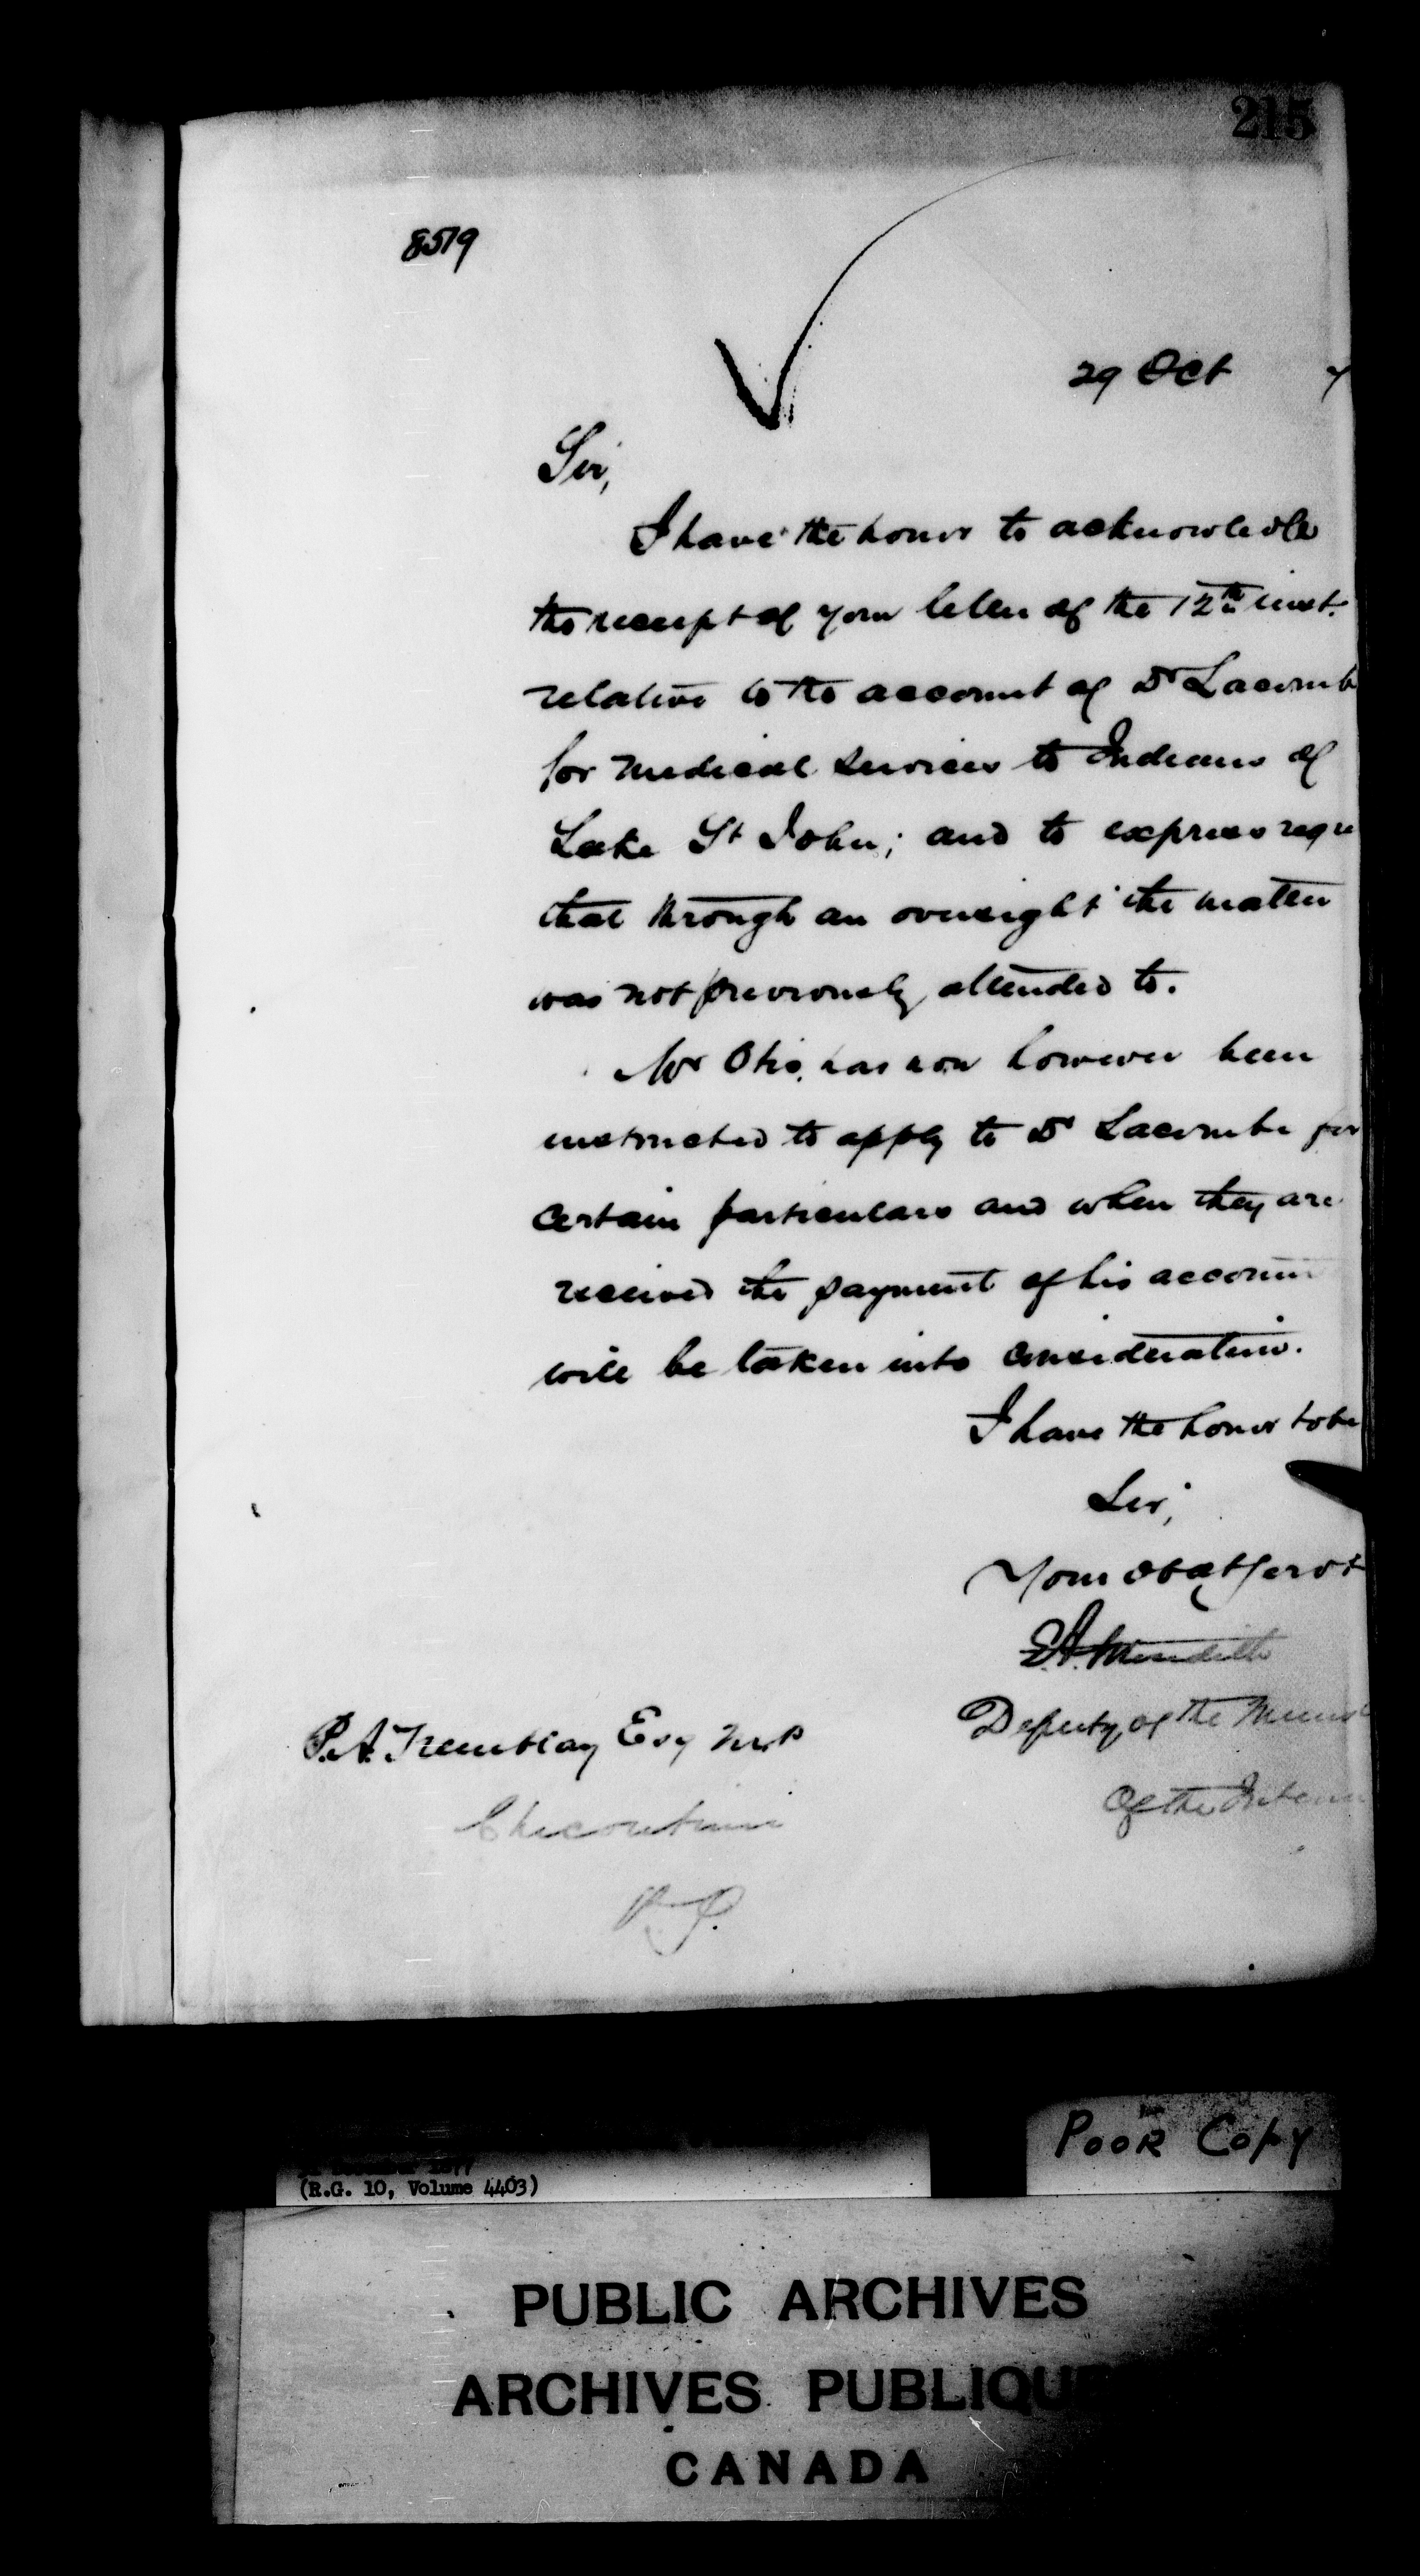 215
8519
29 Oct 7
Sir,
I have the honor to acknowledge
the receipt of your letter of the 12th inst.
relative to the account of Dr Lacomb
for medical services to Indians of
Lake St John; and to express regre
that through an oversight the matter
was not previously attended to.
Mr Otis, has now however been
instructed to apply to Dr Lacombe for
certain particulars and when they are
received the payment of his accoun
will be taken into consideration.
I have the honor to be
Sir,
Your obdt servt
E.A. Meredith
Deputy of the Minist
Of the Interi
P.A. Tremblay Esq M.P
Chicoutimi
P.Q.
Poor Copy
(R.G. 10, Volume 4403)
PUBLIC ARCHIVES
ARCHIVES PUBLIQUE
CANADA